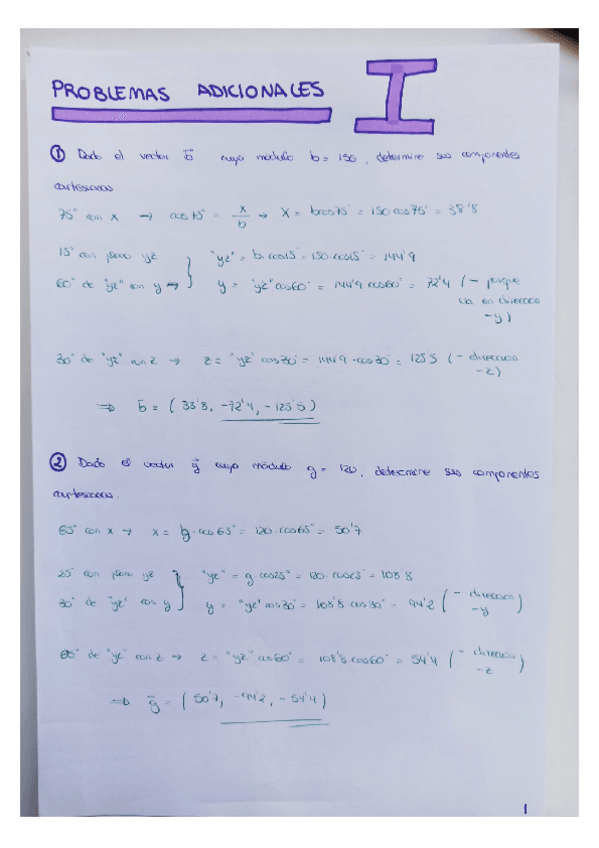 PROBLEMAS ADICIONALES I
① Dado el vector b⃗ cuyo módulo b = 150, determine sus componentes
cartesianas
75° con x → cos75° = x/b → x = b·cos75° = 150 cos75° = 38'8
15° con plano yz } "yz" = b·cos15° = 150·cos15° = 144'9
60° de "yz" con y → y = "yz" cos60° = 144'9 cos60° = 72'4 (- porque
va en dirección
-y)
30° de "yz" con z → z = "yz" cos30° = 144'9·cos30° = 125'5 (- dirección
-z)
⇒ b⃗ = (38'8, -72'4, -125'5)
② Dado el vector g⃗ cuyo módulo g = 120, determine sus componentes
cartesianas.
65° con x → x = g·cos65° = 120·cos65° = 50'7
25° con plano yz } "yz" = g cos25° = 120·cos25° = 108'8
30° de "yz" con y } y = "yz" cos30° = 108'8 cos30° = 94'2 (- dirección
-y)
60° de "yz" con z → z = "yz" cos60° = 108'8 cos60° = 54'4 (- dirección
-z)
⇒ g⃗ = (50'7, -94'2, -54'4)
1